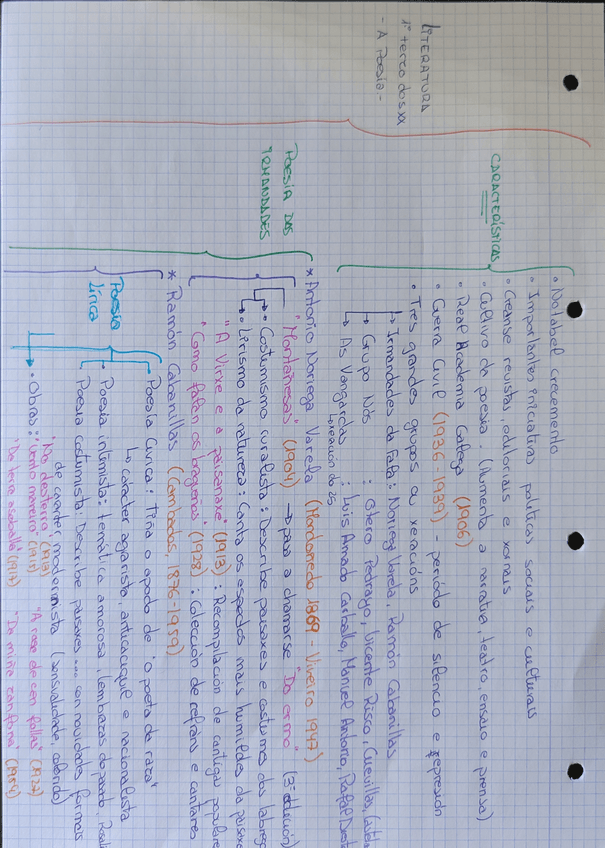 LITERATURA
1º terzo do s XX
- A Poesía -
CARACTERÍSTICAS
• Notabel crecemento
• Importantes iniciativas políticas, sociais e culturais
• Créanse revistas, editoriais e xornais
• Cultivo da poesía. (Aumenta a narrativa, teatro, ensaio e prensa)
• Real Academia Galega (1906)
• Guerra Civil (1936-1939) - período de silencio e represión
• Tres grandes grupos ou xeracións
↳ Irmandades da Fala: Noriega Varela, Ramón Cabanillas
↳ Grupo Nós : Otero Pedrayo, Vicente Risco, Cuevillas,
↳ As Vangardas : Luis Amado Carballo, Manuel Antonio, Rafael
Xeración do 25
POESÍA DAS
IRMANDADES
* Antonio Noriega Varela (Mondoñedo 1869 - Viveiro 1947)
"Montañesas" (1904) → pasa a chamarse "Do ermo" (3ª edición)
↳ Costumismo ruralista: Describe paisaxes e costumes dos labregos
↳ Lirismo da natureza: Canta os aspectos mais humildes da paisaxe
"A Virxe e a paisanaxe" (1913): Recompilación de cantigas populare
"Como falan os brañegos" (1928): Colección de refráns e cantares
* Ramón Cabanillas (Cambados, 1876-1959)
Poesía
Lírica
• Poesía Cívica: Tiña o apodo de "o poeta da raza"
↳ carácter agrarista, anticaciquil e nacionalista
• Poesía intimista: temática amorosa, lembranzas do pasado,
• Poesía costumista: Describe paisaxes ... con novidades formais
de carácter modernista (sensualidade,
• Obras: "No desterro" (1913) "A rosa de cen follas" (1927)
"Vento mareiro" (1915)
"Da terra asoballada" (1917) "Da miña zanfona" (1954)